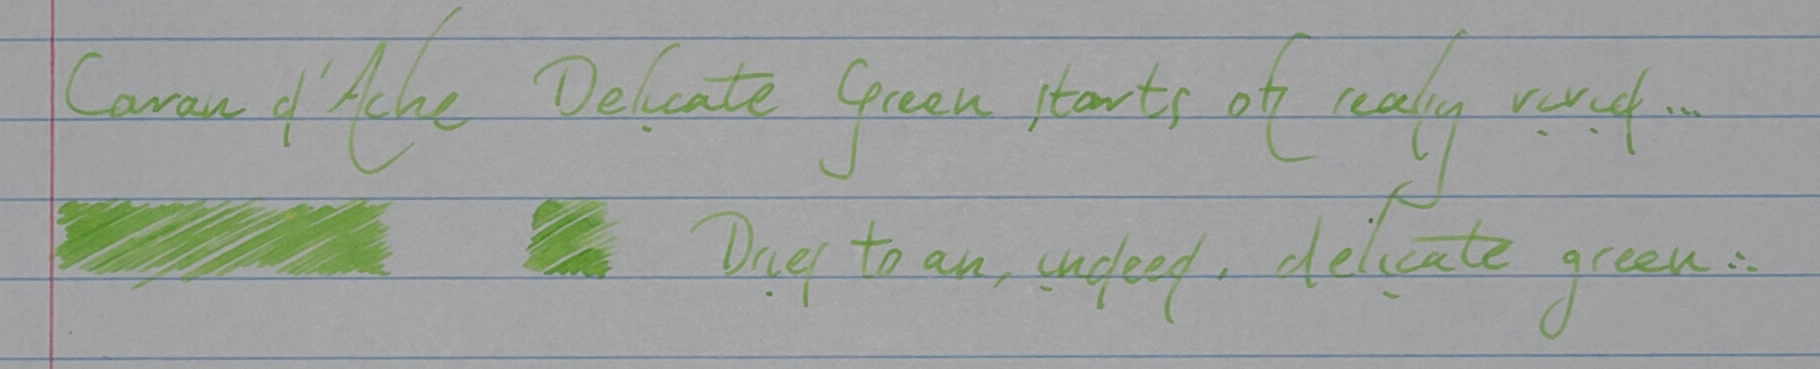 Caran d'Ache Delicate Green starts off really vivid...
Dries to an, indeed, delicate green...